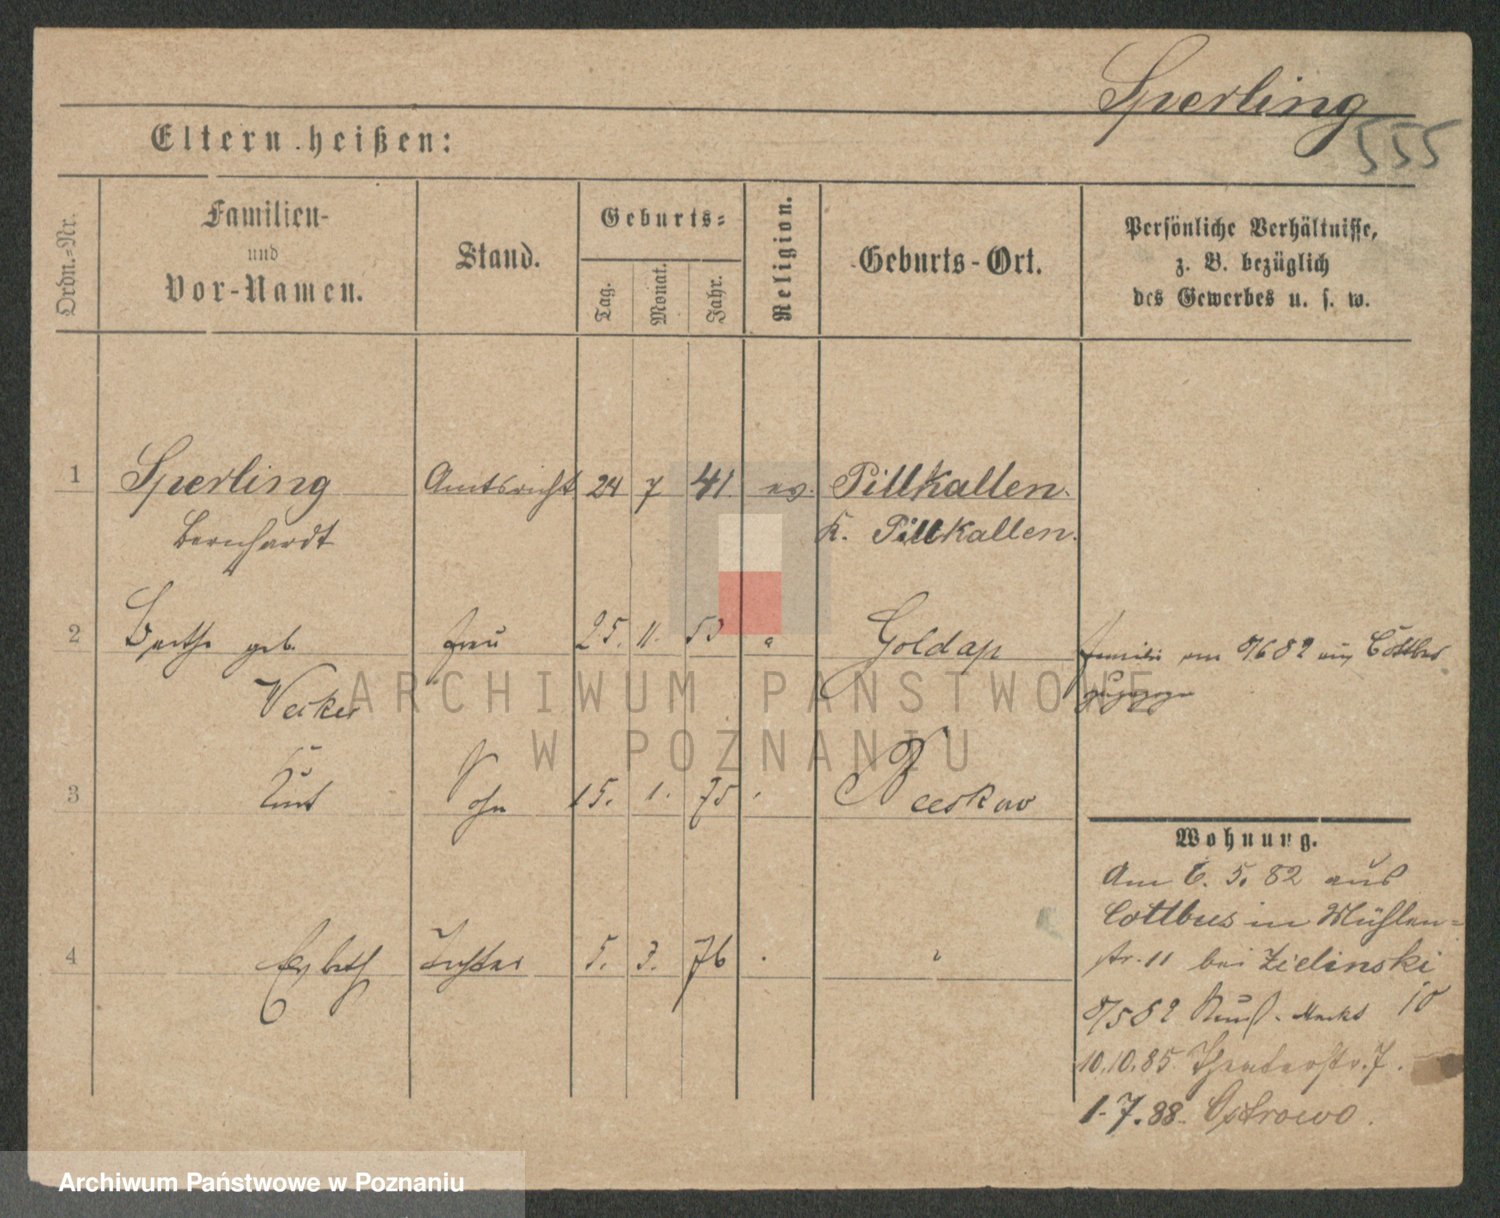 Sperling
555
Eltern heißen:
Ordn.=Nr.
Familien-
und
Vor-Namen.
Stand.
Geburts=
Tag.
Monat.
Jahr.
Religion.
Geburts-Ort.
Persönliche Verhältnisse,
z. B. bezüglich
des Gewerbes u. s. w.
1 Sperling Amtsricht 24 7 41. ev. Pillkallen.
Bernhardt K. Pillkallen.
2 Berthe geb. Frau 25. 11. 53 " Goldap Familie am 9/6 82 aus Cottbus
zugezogen
3 Kurt Sohn 15. 1. 75 Beeskow
Wohnung.
Am 6. 5. 82 aus
Cottbus in Mühlen=
4 Tochter 5. 3. 76 " str. 11 bei Zielinski
10
10.10.85 Theaterstr. 7.
1.7.88. Ostrowo.
ARCHIWUM PAŃSTWOWE
W POZNANIU
Archiwum Państwowe w Poznaniu